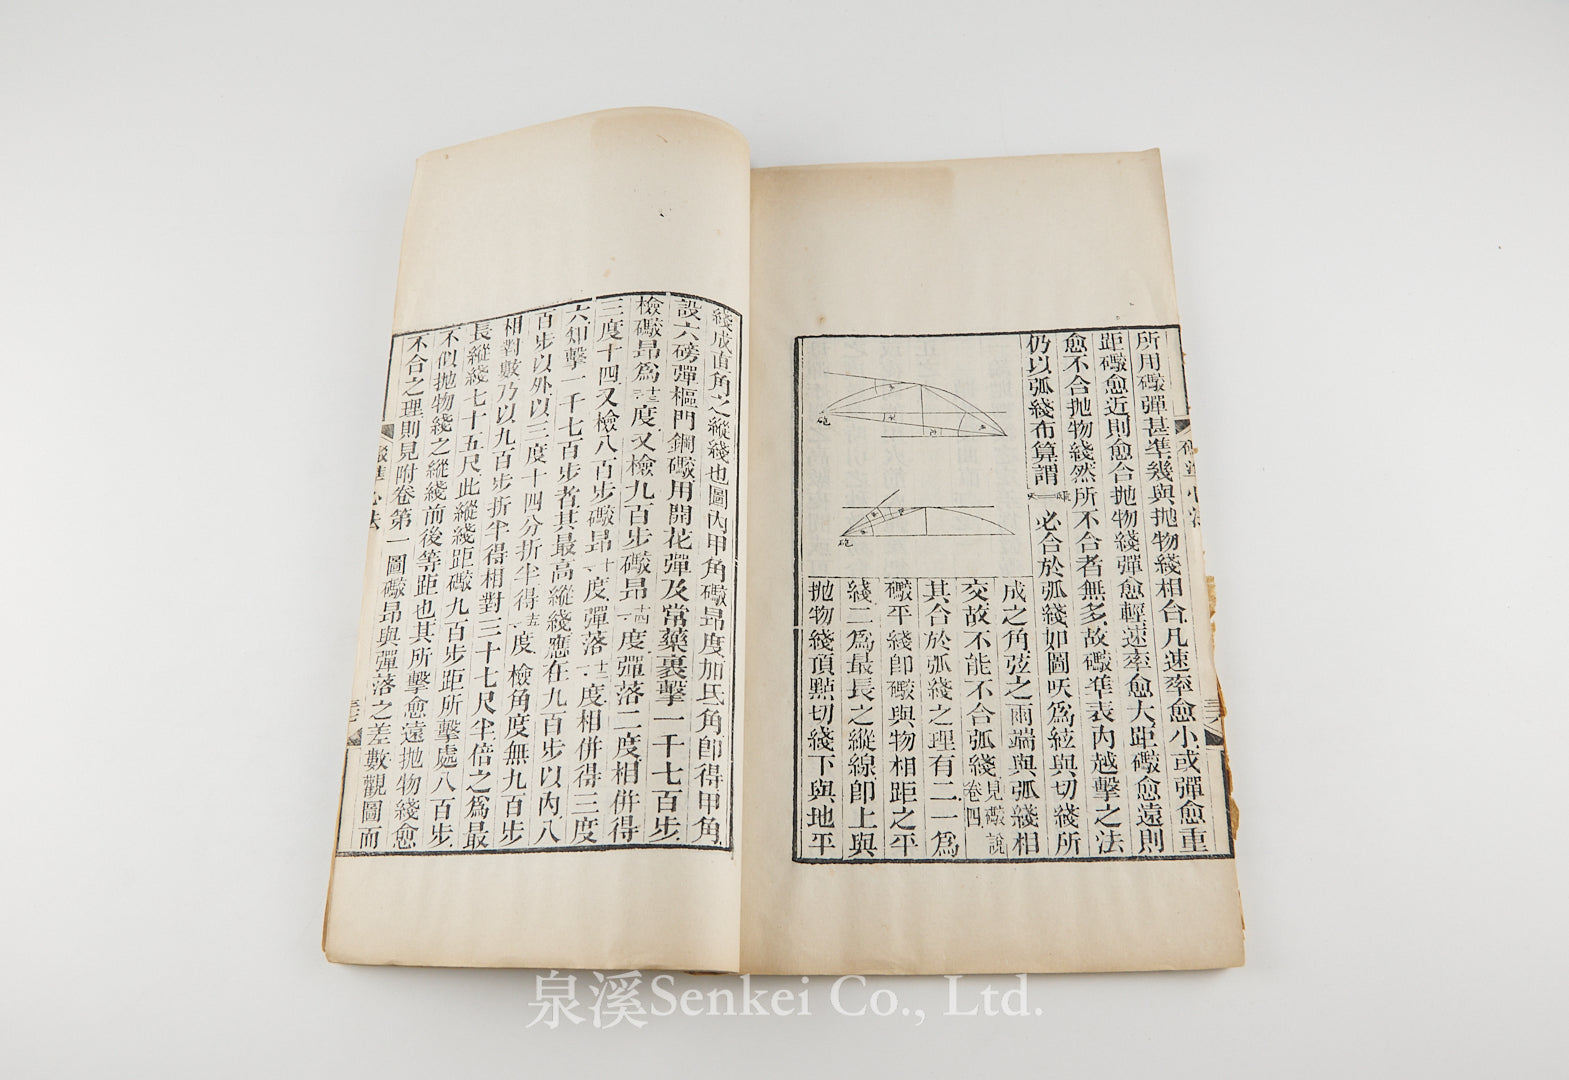 所用礮彈甚準幾與拋物綫相合凡速率愈小或彈愈重
距礮愈近則愈合拋物綫彈愈輕速率愈大距礮愈遠則
愈不合拋物綫然所不合者無多故礮準表內越擊之法
仍以弧綫布算謂
必合於弧綫如圖呅為絃與切綫所
成之角弦之兩端與弧綫相
交故不能不合弧綫見礮說卷四
其合於弧綫之理有二一為
礮平綫卽礮與物相距之平
綫二為最長之縱線卽上與
拋物綫頂點切綫下與地平
砲
砲
綫成直角之縱綫也圖內甲角礮昂度加氐角卽得甲角
設六磅彈樞門鋼礮用開花彈及常藥裹擊一千七百步
檢礮昂為十三度又檢九百步礮昂一十四度彈落二度相併得
三度十四又檢八百步礮昂一十度彈落一十二度相併得三度
六知擊一千七百步者其最高縱綫應在九百步以內八
百步以外以三度十四分折半得一十五度檢角度無九百步
相對數乃以九百步折半得相對三十七尺半倍之為最
長縱綫七十五尺此縱綫距礮九百步距所擊處八百步
不似拋物綫之縱綫前後等距也其所擊愈遠拋物綫愈
不合之理則見附卷第一圖礮昂與彈落之差數觀圖而
泉溪Senkei Co., Ltd.